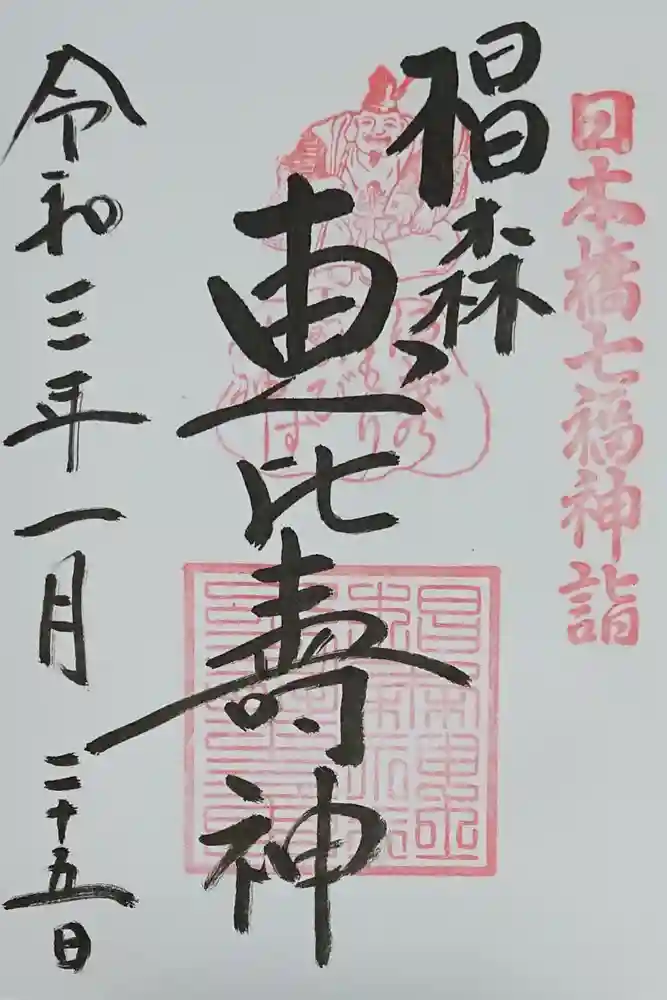 日本橋七福神詣
椙森
恵比寿神
令和三年一月二十五日